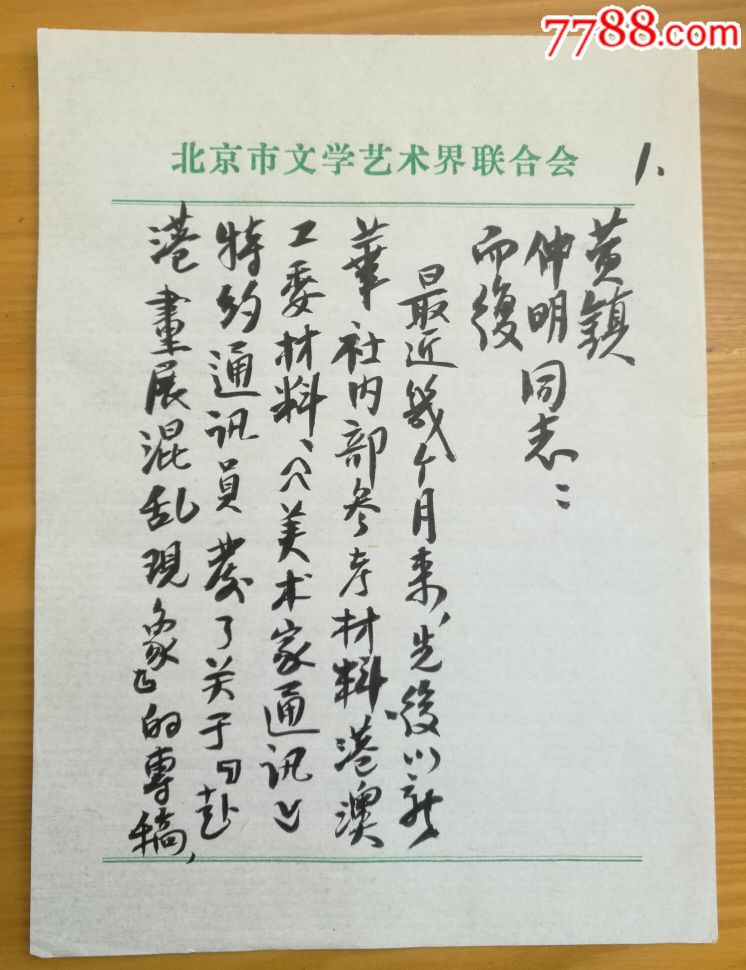 7788.com
北京市文学艺术界联合会
1.
黄鎮
仲明同志：
而復
最近幾个月来、先後以新
華社内部参考材料、港澳
工委材料、《美术家通讯》
特约通讯員發了关于『赴
港畫展混乱現象』的專稿，